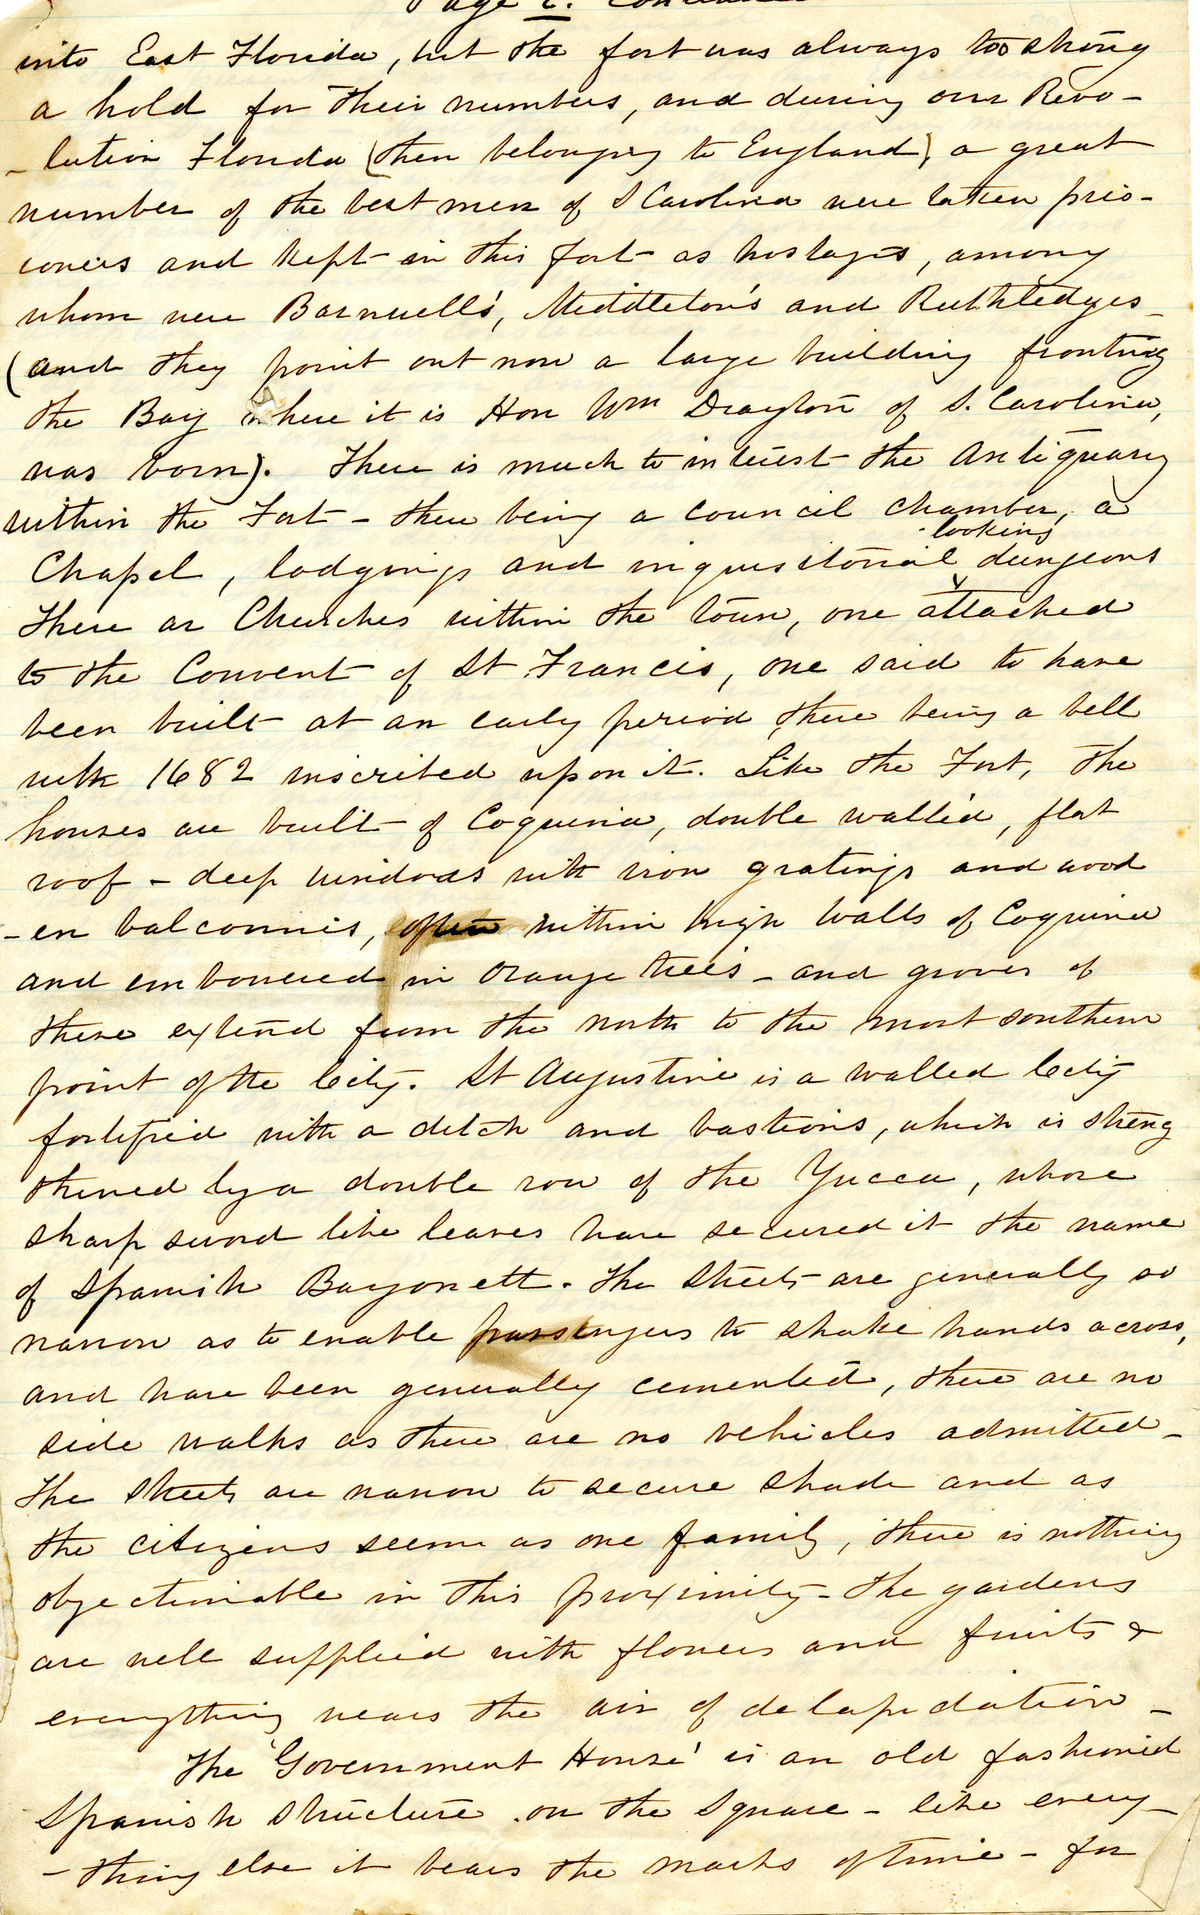 Page 2. Continued
into East Florida, but the fort was always too strong
a hold for their numbers, and during our Revo-
-lution Florida (then belonging to England), a great
number of the best men of S Carolina were taken pris-
oners and kept in this fort as hostages, among
whom were Barnwell's, Middleton's and Ruthledges -
(and they point out now a large building fronting
the Bay where it is Hon Wm Drayton of S. Carolina,
was born). There is much to interest the Antiquary
within the Fort - there being a council chamber, a
looking
Chapel, lodgings and inquisitorial dungeons
There are Churches within the town, one attached
to the Convent of St Francis, one said to have
been built at an early period, there being a bell
with 1682 inscribed upon it. Like the Fort, the
houses are built of Coquina, double walled, flat
roof - deep windows with iron gratings and wood
-en balconnies, often within high walls of Coquina
and embowered in Orange trees - and groves of
these extend from the north to the most southern
point of the City. St Augustine is a walled City
fortified with a ditch and bastions, which is streng
thened by a double row of the Yucca, whose
sharp sword like leaves have secured it the name
of Spanish Bayonett. The streets are generally so
narrow as to enable passengers to shake hands across,
and have been generally cemented, there are no
side walks as there are no vehicles admitted -
The Streets are narrow to secure shade and as
the citizens seem as one family, there is nothing
objectionable in this proximity - the gardens
are well supplied with flowers and fruits &
everything wears the air of delapidation -
The 'Government House' is an old fashioned
Spanish structure on the Square - like every-
-thing else it bears the marks of time - for